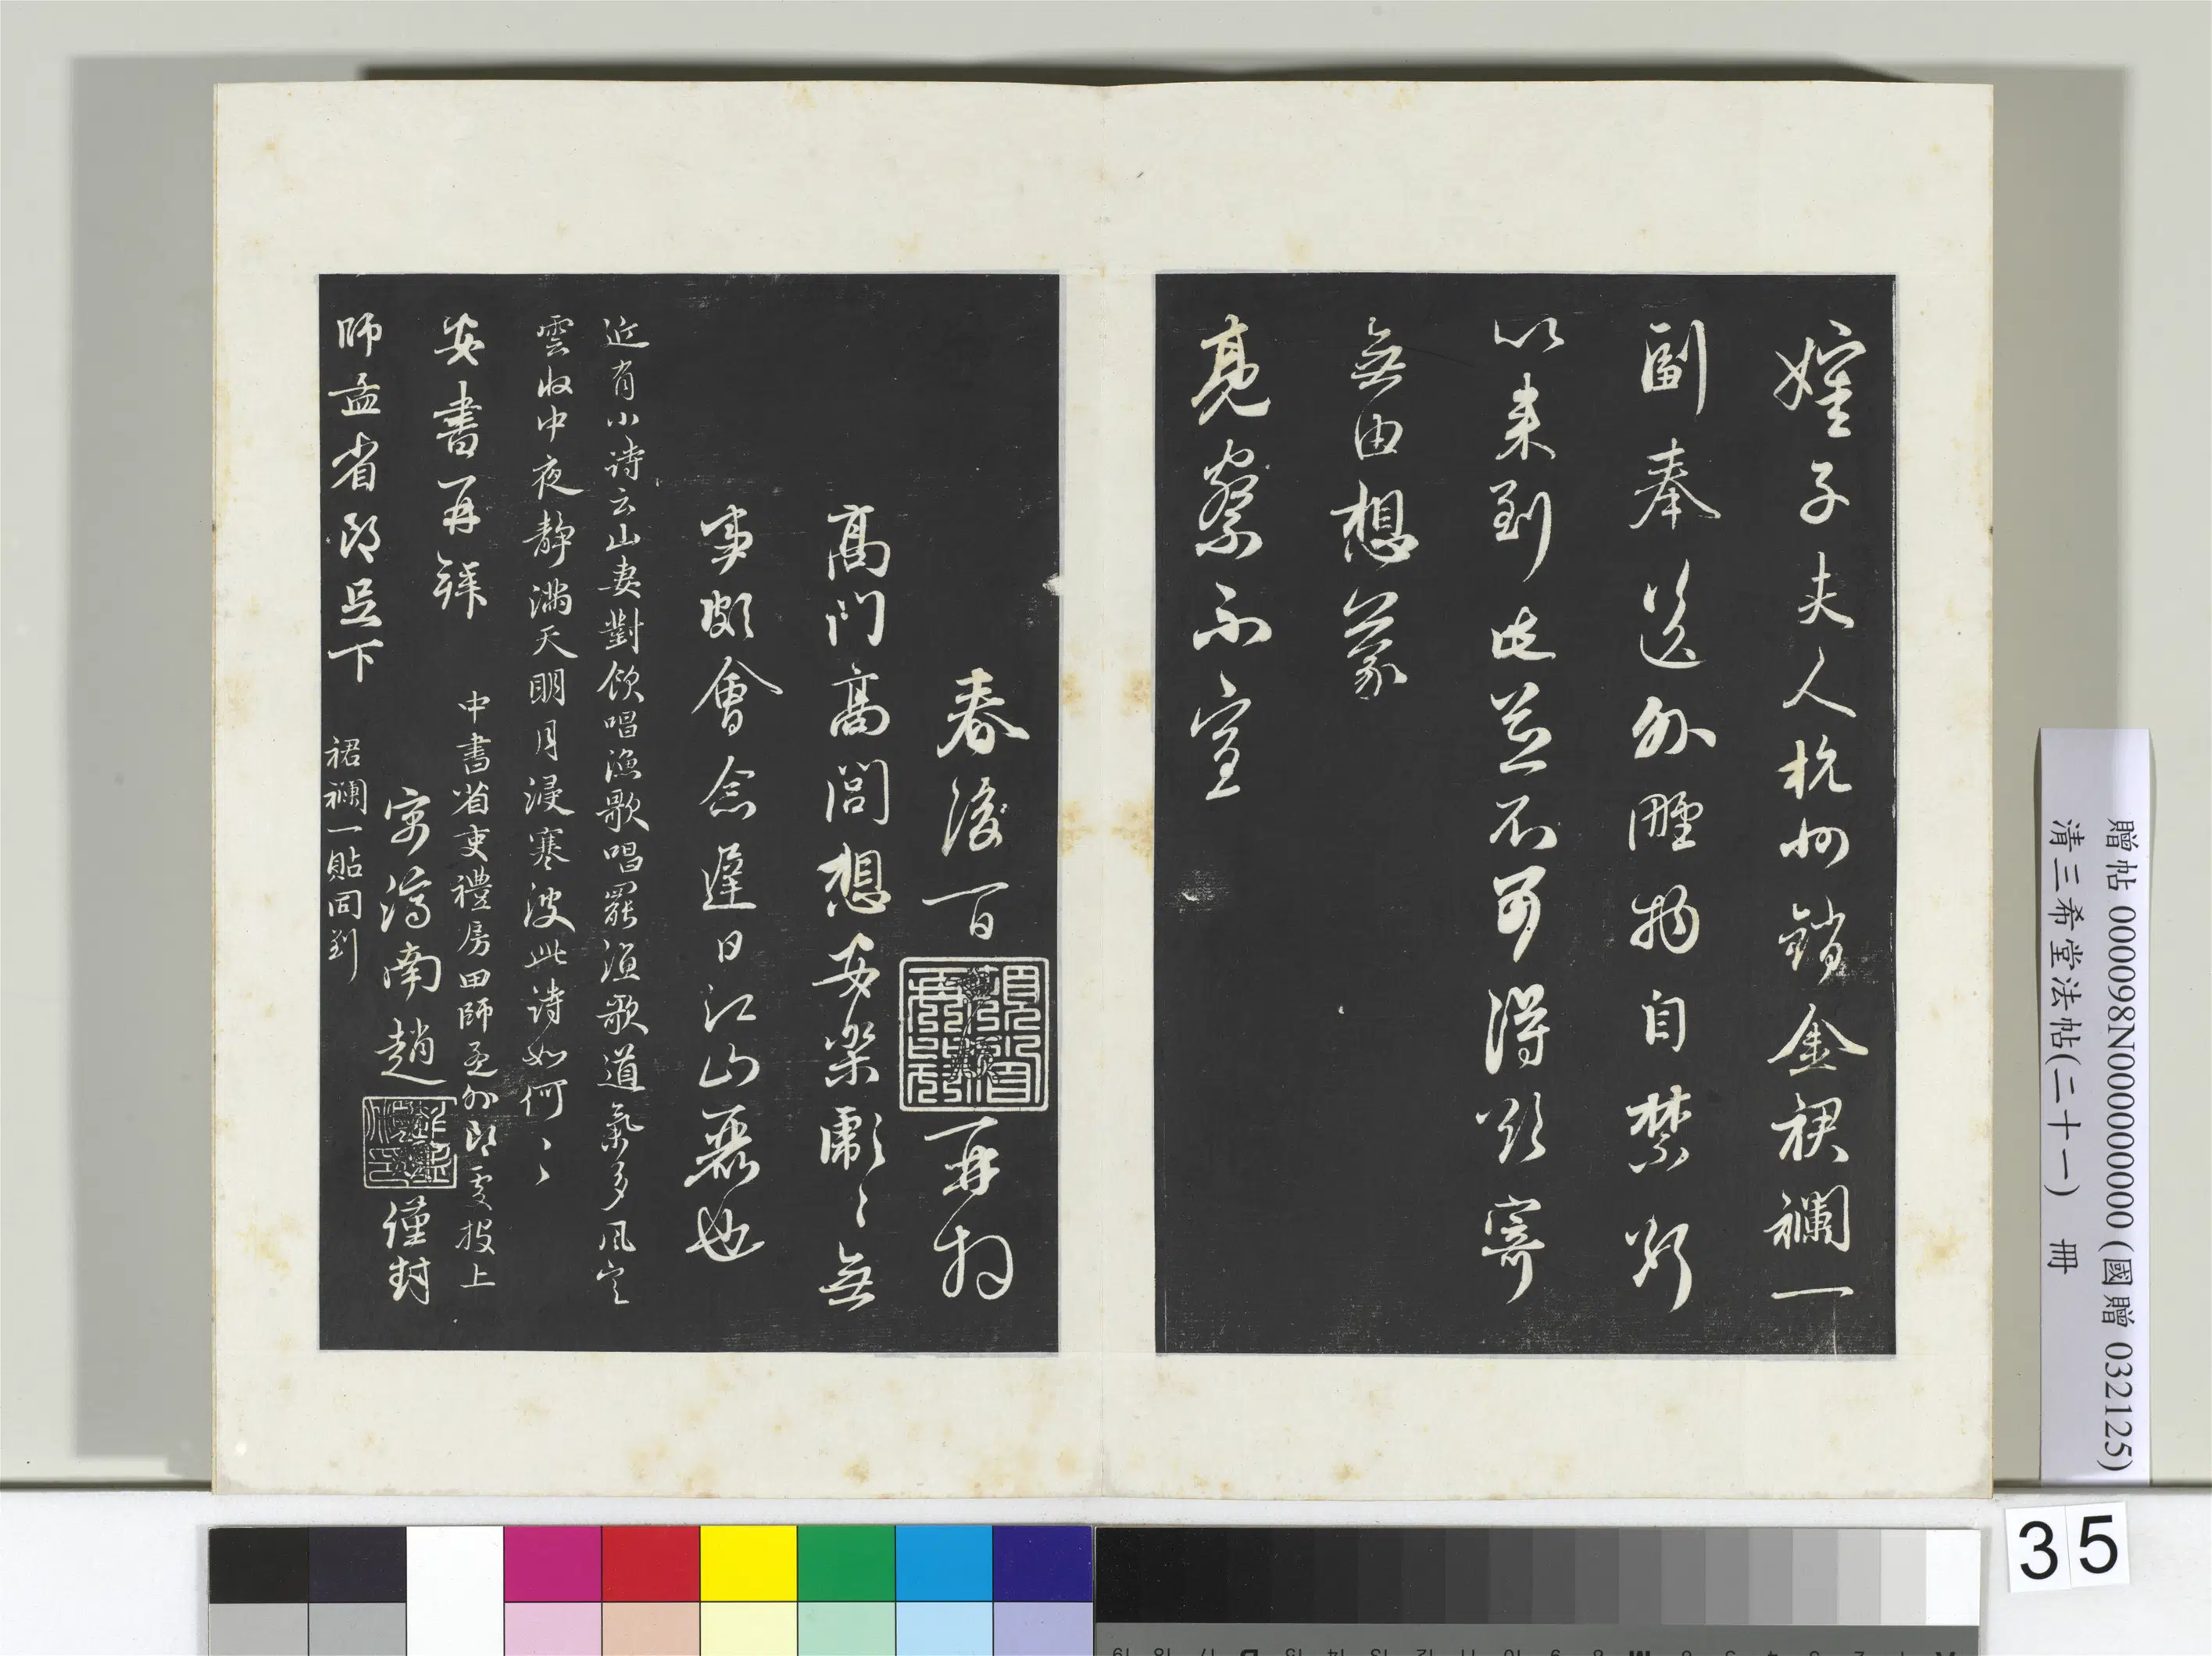 姪子夫人杭州銷金裙襴一
副奉送外羅物自禁斷
以來到此並不可得欵寄
無由想蒙
亮察不宣
春後百
再拜
髙門髙閭想安樂彪彪無
事頗會念遲日江山麗也
近有小詩云山妻對飲唱漁歌唱罷漁歌道氣多風定
雲收中夜静滿天明月浸寒波此詩如何〻
安書再拜
中書省吏禮房田師孟外郎處投上
師孟省郎足下
寓濟南趙
僅封
裙襴一貼同到
贈帖 000098N000000000 (國贈 032125)
清三希堂法帖(二十一) 冊
35